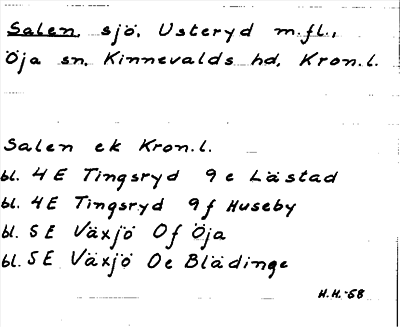 Salen, sjö, Usteryd m.fl.,
Öja sn, Kinnevalds hd, Kron.l.
Salen ek Kron.l.
bl. 4E Tingsryd 9e Låstad
bl. 4E Tingsryd 9f Huseby
bl. 5E Växjö 0f Öja
bl. 5E Växjö 0e Blädinge
H.H.-68